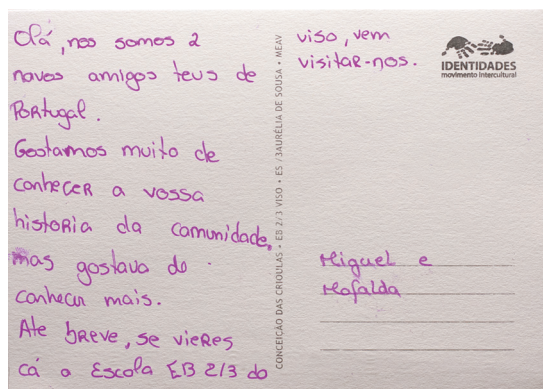 Olá, nos somos 2
novos amigos teus de
Portugal.
Gostamos muito de
conhecer a vossa
historia da comunidade,
mas gostava de
conhecer mais.
Ate breve, se vieres
cá a Escola EB 2/3 do
viso, vem
visitar-nos.
CONCEIÇÃO DAS CRIOULAS • EB 2/3 VISO • ES /3AURÉLIA DE SOUSA • MEAV
IDENTIDADES
movimento intercultural
Miguel e
Mafalda